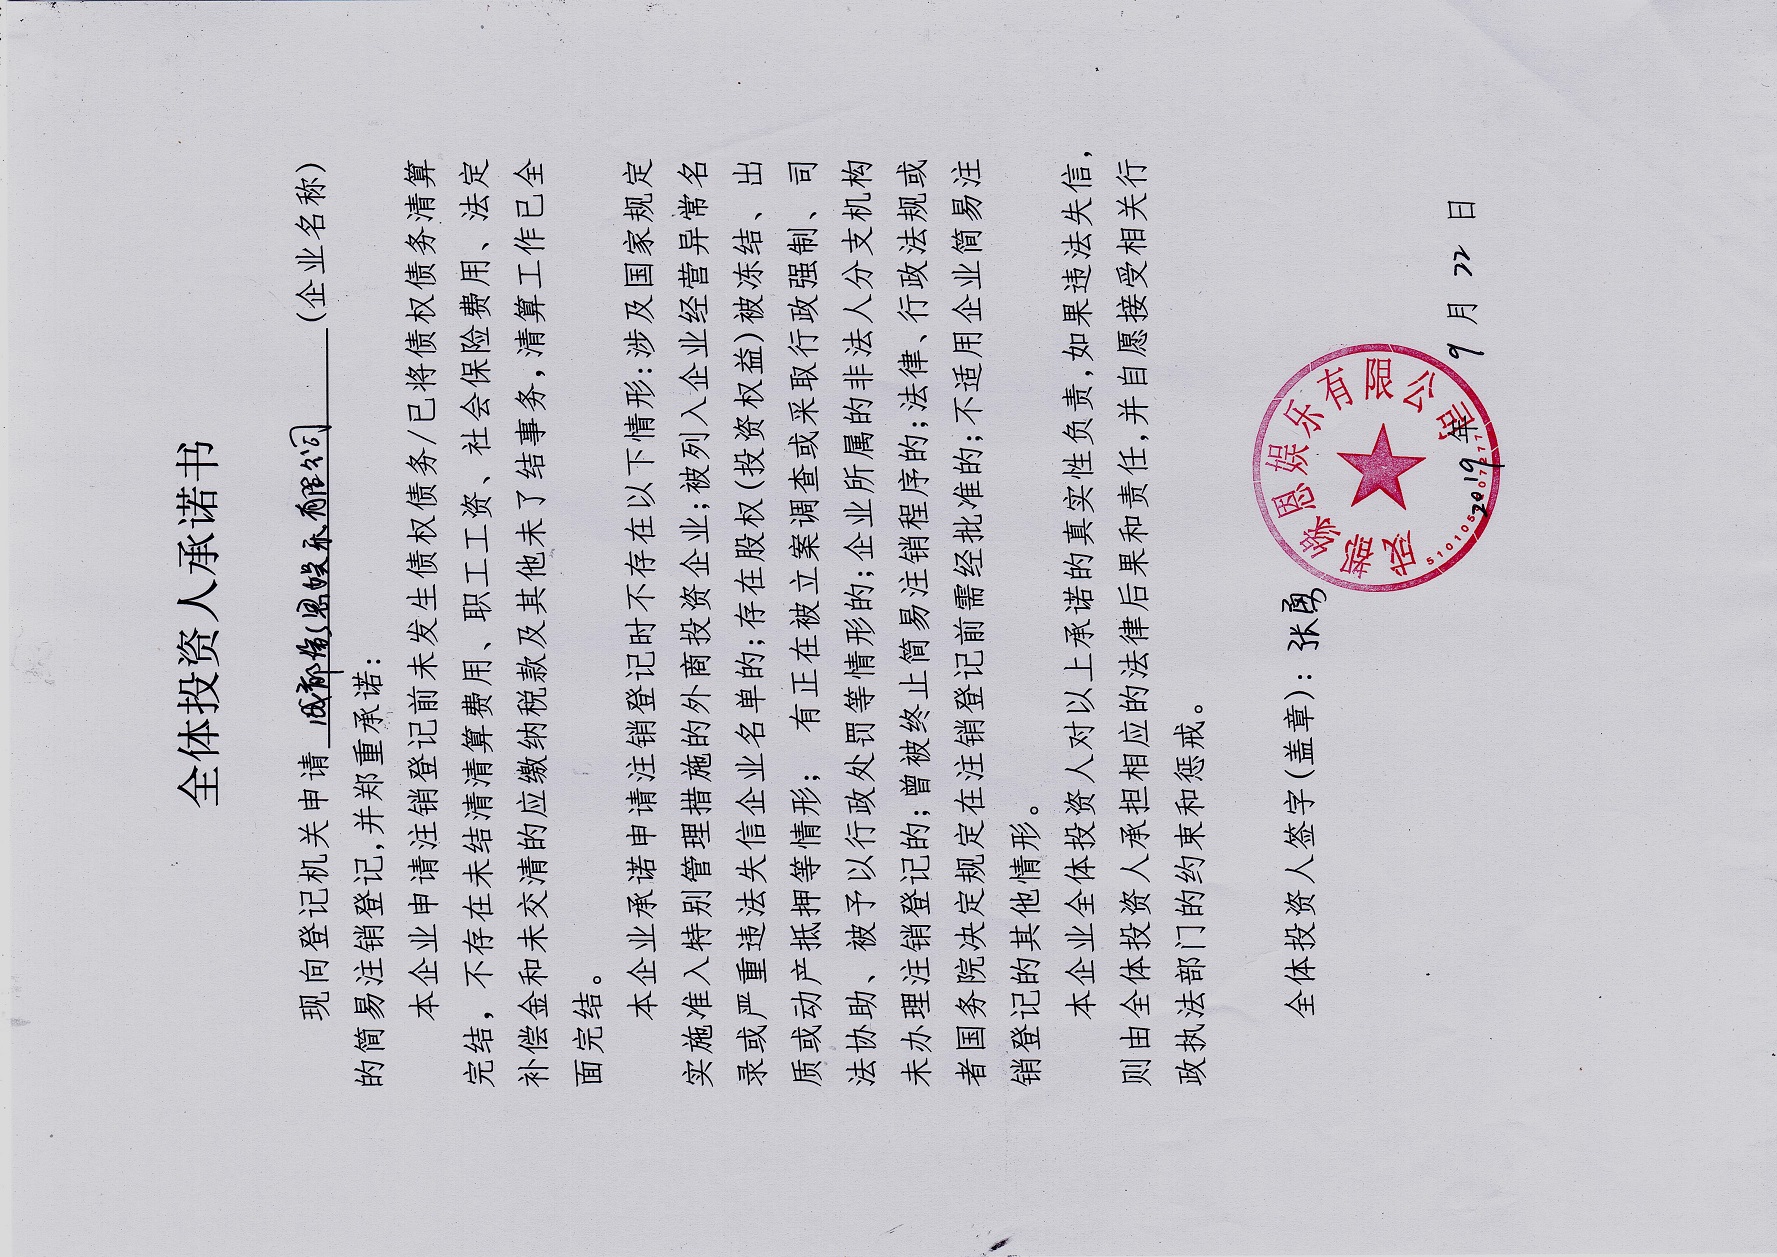 全体投资人承诺书
现向登记机关申请 成都 恩娱乐有限公司 (企业名称)
的简易注销登记,并郑重承诺:
本企业申请注销登记前未发生债权债务/已将债权债务清算
完结，不存在未结清清算费用、职工工资、社会保险费用、法定
补偿金和未交清的应缴纳税款及其他未了结事务,清算工作已全
面完结。
本企业承诺申请注销登记时不存在以下情形:涉及国家规定
实施准入特别管理措施的外商投资企业;被列入企业经营异常名
录或严重违法失信企业名单的;存在股权(投资权益)被冻结、出
质或动产抵押等情形； 有正在被立案调查或采取行政强制、司
法协助、被予以行政处罚等情形的;企业所属的非法人分支机构
未办理注销登记的;曾被终止简易注销程序的;法律、行政法规或
者国务院决定规定在注销登记前需经批准的;不适用企业简易注
销登记的其他情形。
本企业全体投资人对以上承诺的真实性负责,如果违法失信，
则由全体投资人承担相应的法律后果和责任,并自愿接受相关行
政执法部门的约束和惩戒。
全体投资人签字(盖章): 张勇
成都 恩娱乐有限公司
2019 年 9 月 22 日